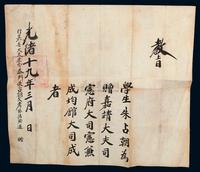 敎旨
學生朱占朝爲
贈嘉靖大夫司
憲府大司憲兼
成均館大司成
者
光緖十九年三月 日